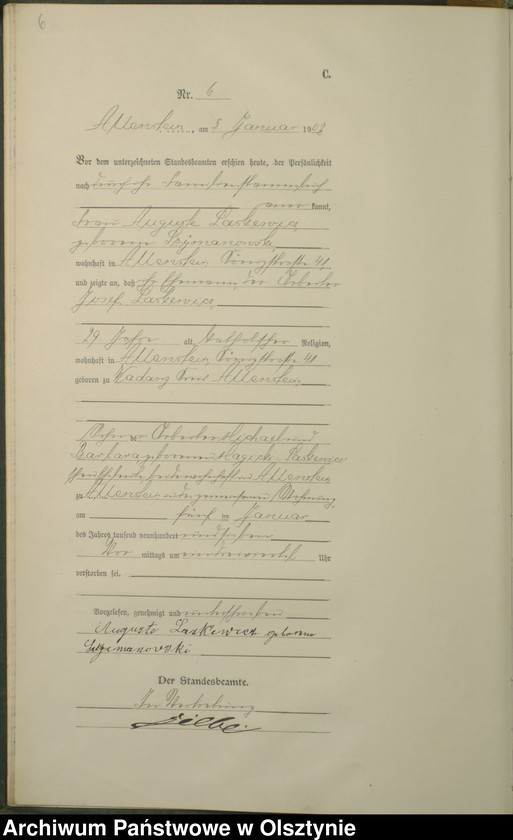 6
C.
Nr. 6
Allenstein, am 8 Januar 1908
Vor dem unterzeichneten Standesbeamten erschien heute, der Persönlichkeit
nach durch Familienstammbuch
aner kannt,
Frau Auguste Laskewicz
geborene Szymanowski
wohnhaft in Allenstein, Königstraße 41
und zeigte an, daß ihr Ehemann, der Arbeiter
Josef Laskewicz
29 Jahre alt, katholischer Religion,
wohnhaft in Allenstein Königstraße 41
geboren zu Wadang Kreis Allenstein
Sohn der Arbeiter Michael und
Barbara geborenen Laskewicz
Eheleute, beide wohnhaft in Allenstein
zu Allenstein in der gemeinsamen Wohnung
am fünf ten Januar
des Jahres tausend neunhundert und sieben
Vor mittags um Uhr
verstorben sei.
Vorgelesen, genehmigt und unterschrieben
Auguste Laskewicz geborene
Szymanovski
Der Standesbeamte.
In Vertretung
Archiwum Państwowe w Olsztynie